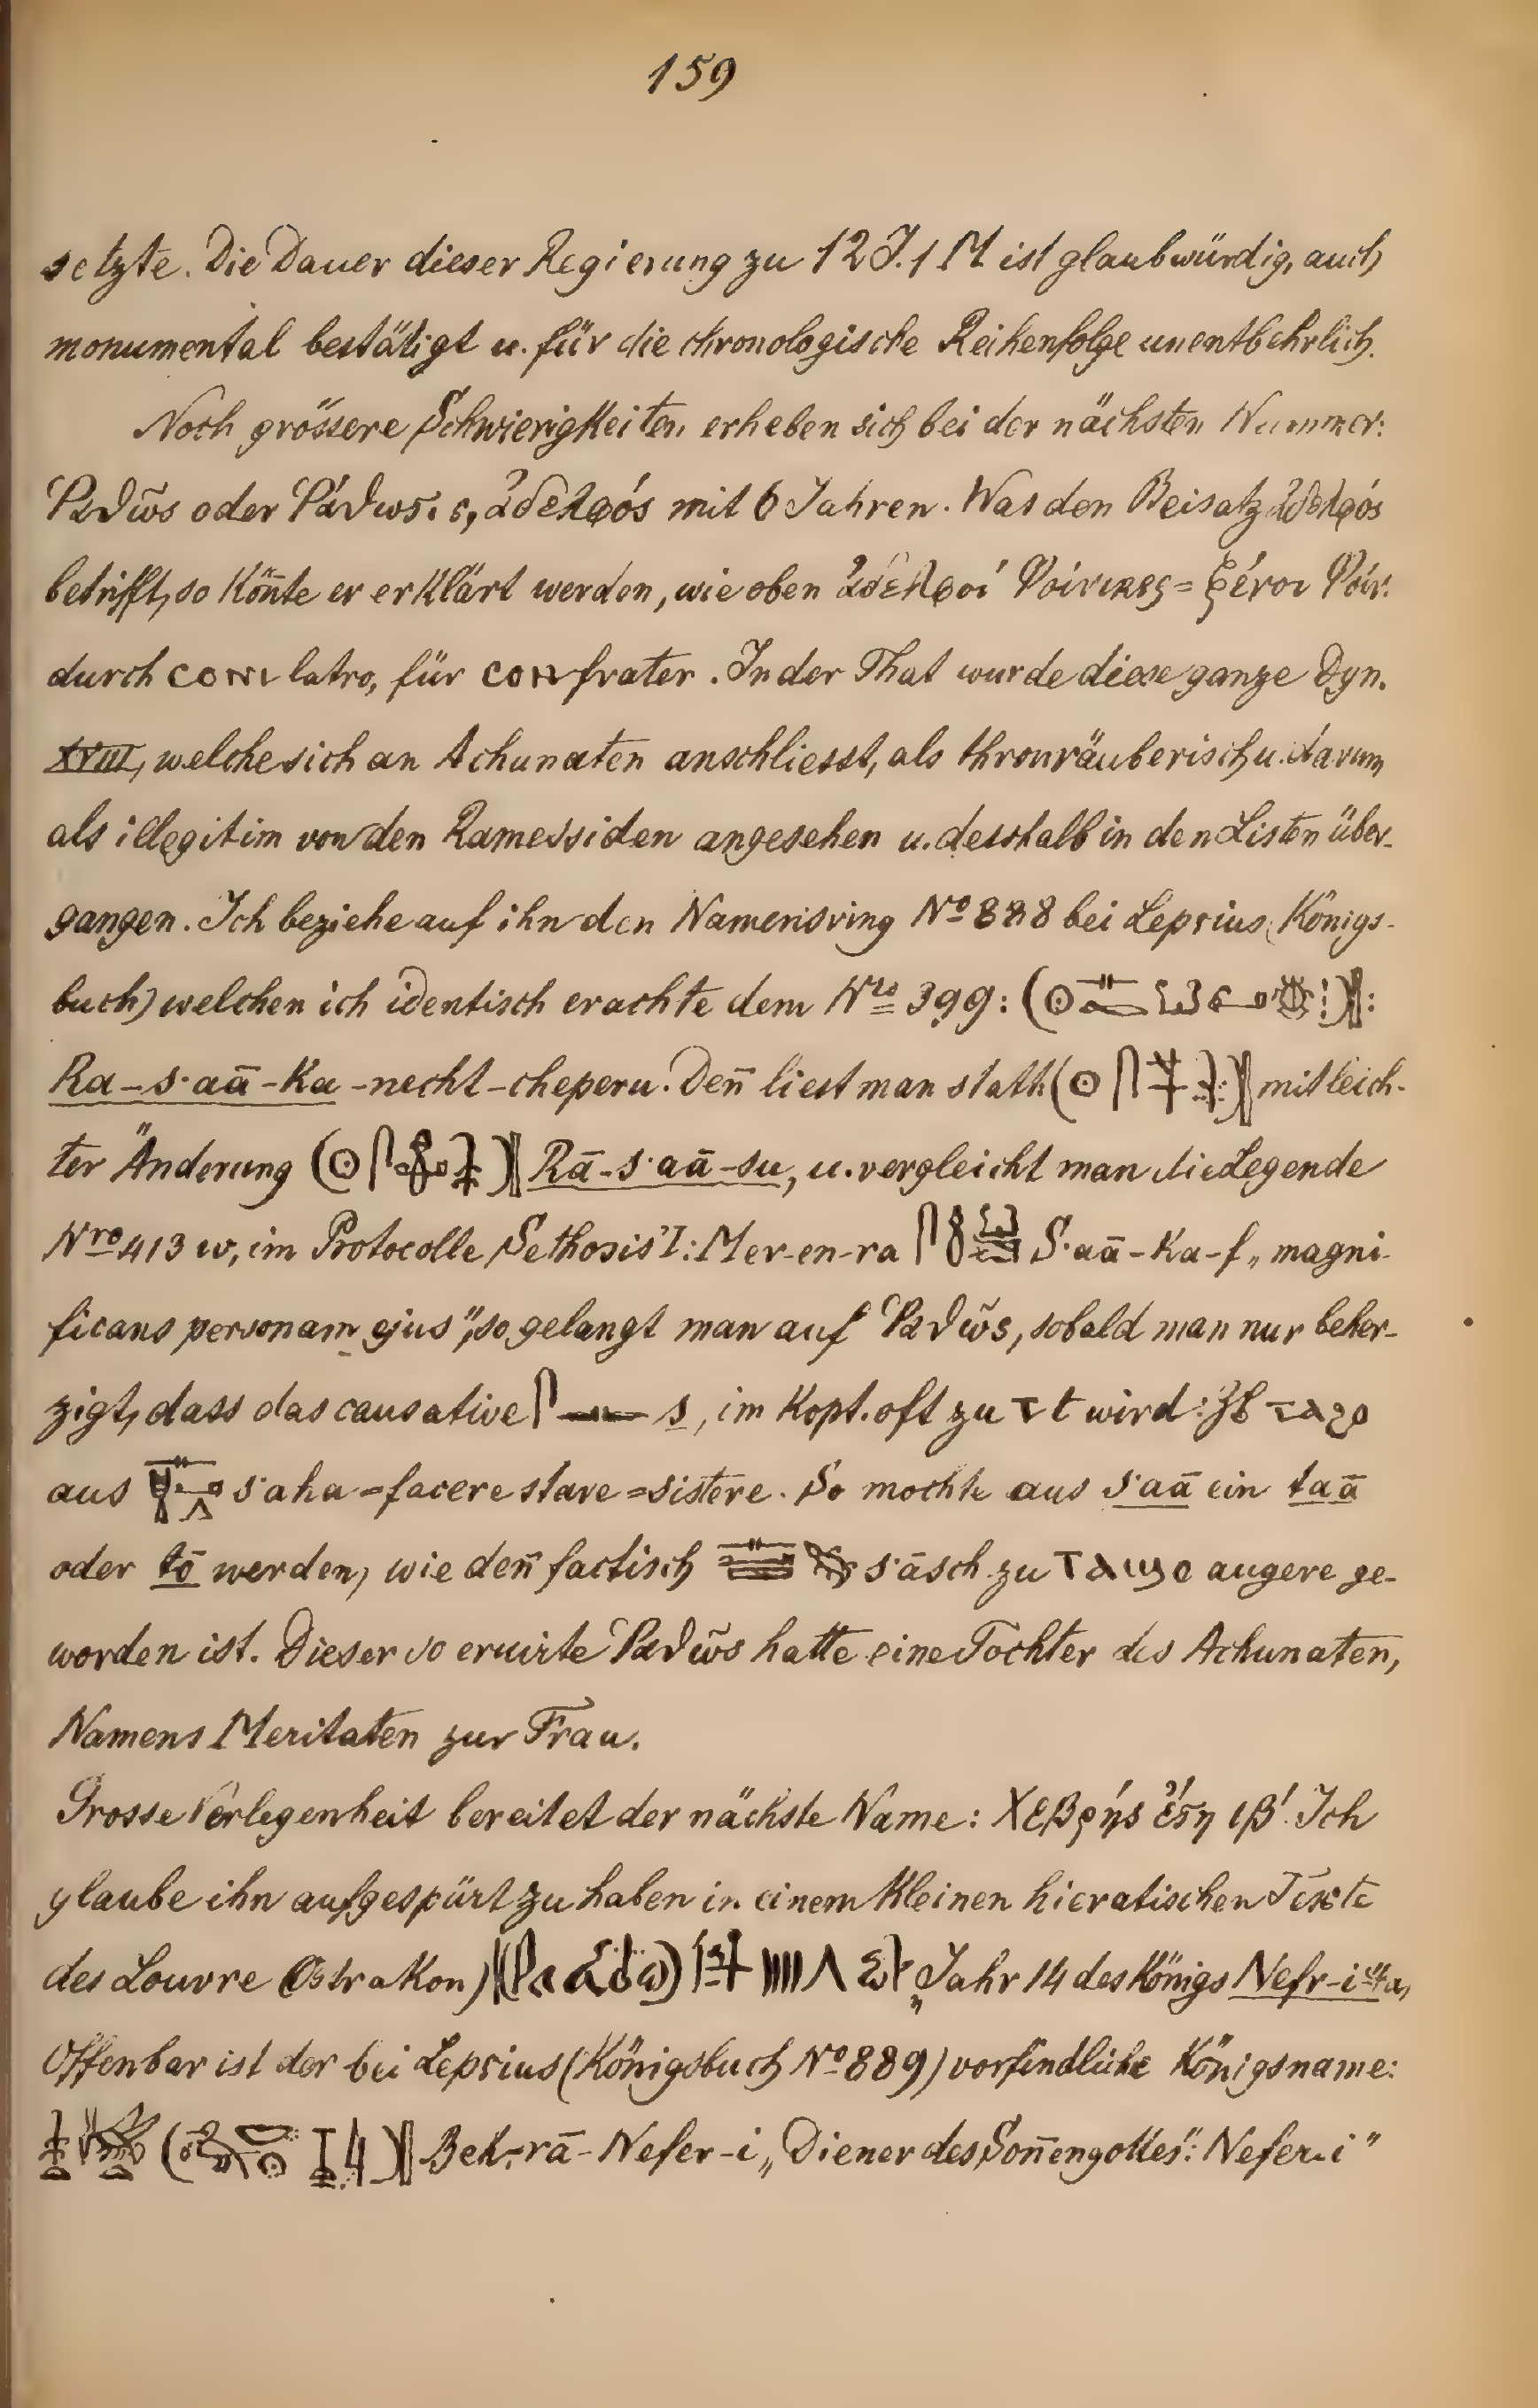 159
setzte. Die Dauer dieser Regierung zu 12 J. 1 M ist glaubwürdig, auch
monumental bestätigt u. für die chronologische Reihenfolge unentbehrlich.
Noch grössere Schwierigkeiten erheben sich bei der nächsten Nummer:
Ῥαϑῶs oder Ῥάϑωs. ϛ, ἀδελφόs mit 6 Jahren. Was den Beisatz ἀδελφόs
betrifft, so kön̄te er erklärt werden, wie oben ἀδελφοί Φοίνικες = ξένοι Φοίν.
durch ⲥⲟⲛⲓ latro, für ⲥⲟⲛ frater. In der That wurde diese ganze Dyn.
XVIII, welche sich an Achunaten anschliesst, als thronräuberisch u. darum
als illegitim von den Ramessiden angesehen u. desshalb in den Listen über-
gangen. Ich beziehe auf ihn den Namensring No 888 bei Lepsius (Königs-
buch) welchen ich identisch erachte dem Nro 399:
Ra-s·aā-Ka-necht-cheperu. Den̄ liest man statt mit leich-
ter Änderung Rā-s·aā-su, u. vergleicht man die Legende
Nro 413 w, im Protocolle Sethosis' I: Mer-en-ra S·aā-Ka-f „magni-
ficans personam ejus", so gelangt man auf Ῥαϑῶs, sobald man nur beher-
zigt, dass das causative s, im Kopt. oft zu ⲧ t wird: ZB ⲧⲁϩⲟ
aus s·aha = facere stare = sistere. So mochte aus s·aā ein taā
oder tō werden, wie den̄ factisch s·āsch zu ⲧⲁϣⲟ augere ge-
worden ist. Dieser so eruirte Ῥαϑῶs hatte eine Tochter des Achunaten,
Namens Meritaten zur Frau.
Grosse Verlegenheit bereitet der nächste Name: Χεβρήs ἔτη ιβ'. Ich
glaube ihn aufgespürt zu haben in einem kleinen hieratischen Texte
des Louvre Ostrakon) „Jahr 14 des Königs
Offenbar ist der bei Lepsius (Königsbuch No 889) vorfindliche Königsname:
Bek-rā-Nefer-i „Diener des Son̄engottes: Nefer-i"